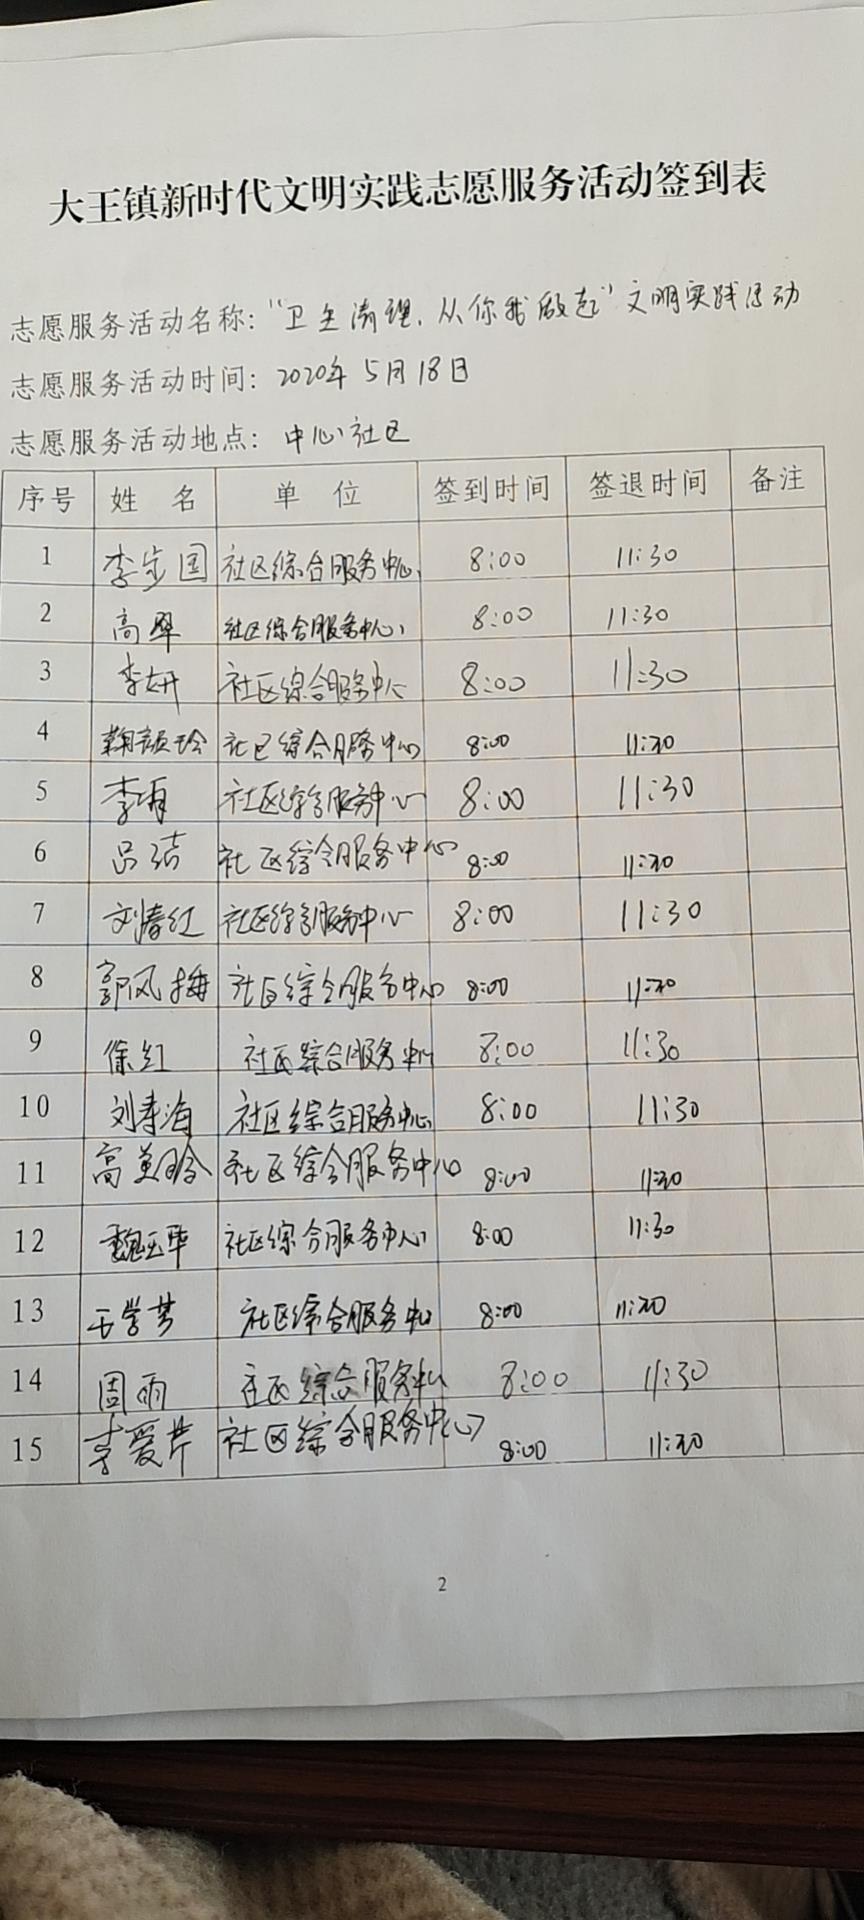 大王镇新时代文明实践志愿服务活动签到表
志愿服务活动名称：“卫生清理，从你我做起”文明实践活动
志愿服务活动时间：2020年5月18日
志愿服务活动地点：中心社区
序号 姓 名 单 位 签到时间 签退时间 备注
1 李步国 社区综合服务中心 8:00 11:30
2 高翠 社区综合服务中心 8:00 11:30
3 李妍 社区综合服务中心 8:00 11:30
4 社区综合服务中心 8:00 11:30
5 李娟 社区综合服务中心 8:00 11:30
6 吕洁 社区综合服务中心 8:00 11:30
7 刘春红 社区综合服务中心 8:00 11:30
8 郭风梅 社区综合服务中心 8:00 11:30
9 徐红 社区综合服务中心 8:00 11:30
10 刘春海 社区综合服务中心 8:00 11:30
11 高美玲 社区综合服务中心 8:00 11:30
12 魏玉华 社区综合服务中心 8:00 11:30
13 王学梦 社区综合服务中心 8:00 11:30
14 周雨 社区综合服务中心 8:00 11:30
15 李爱芹 社区综合服务中心 8:00 11:30
2